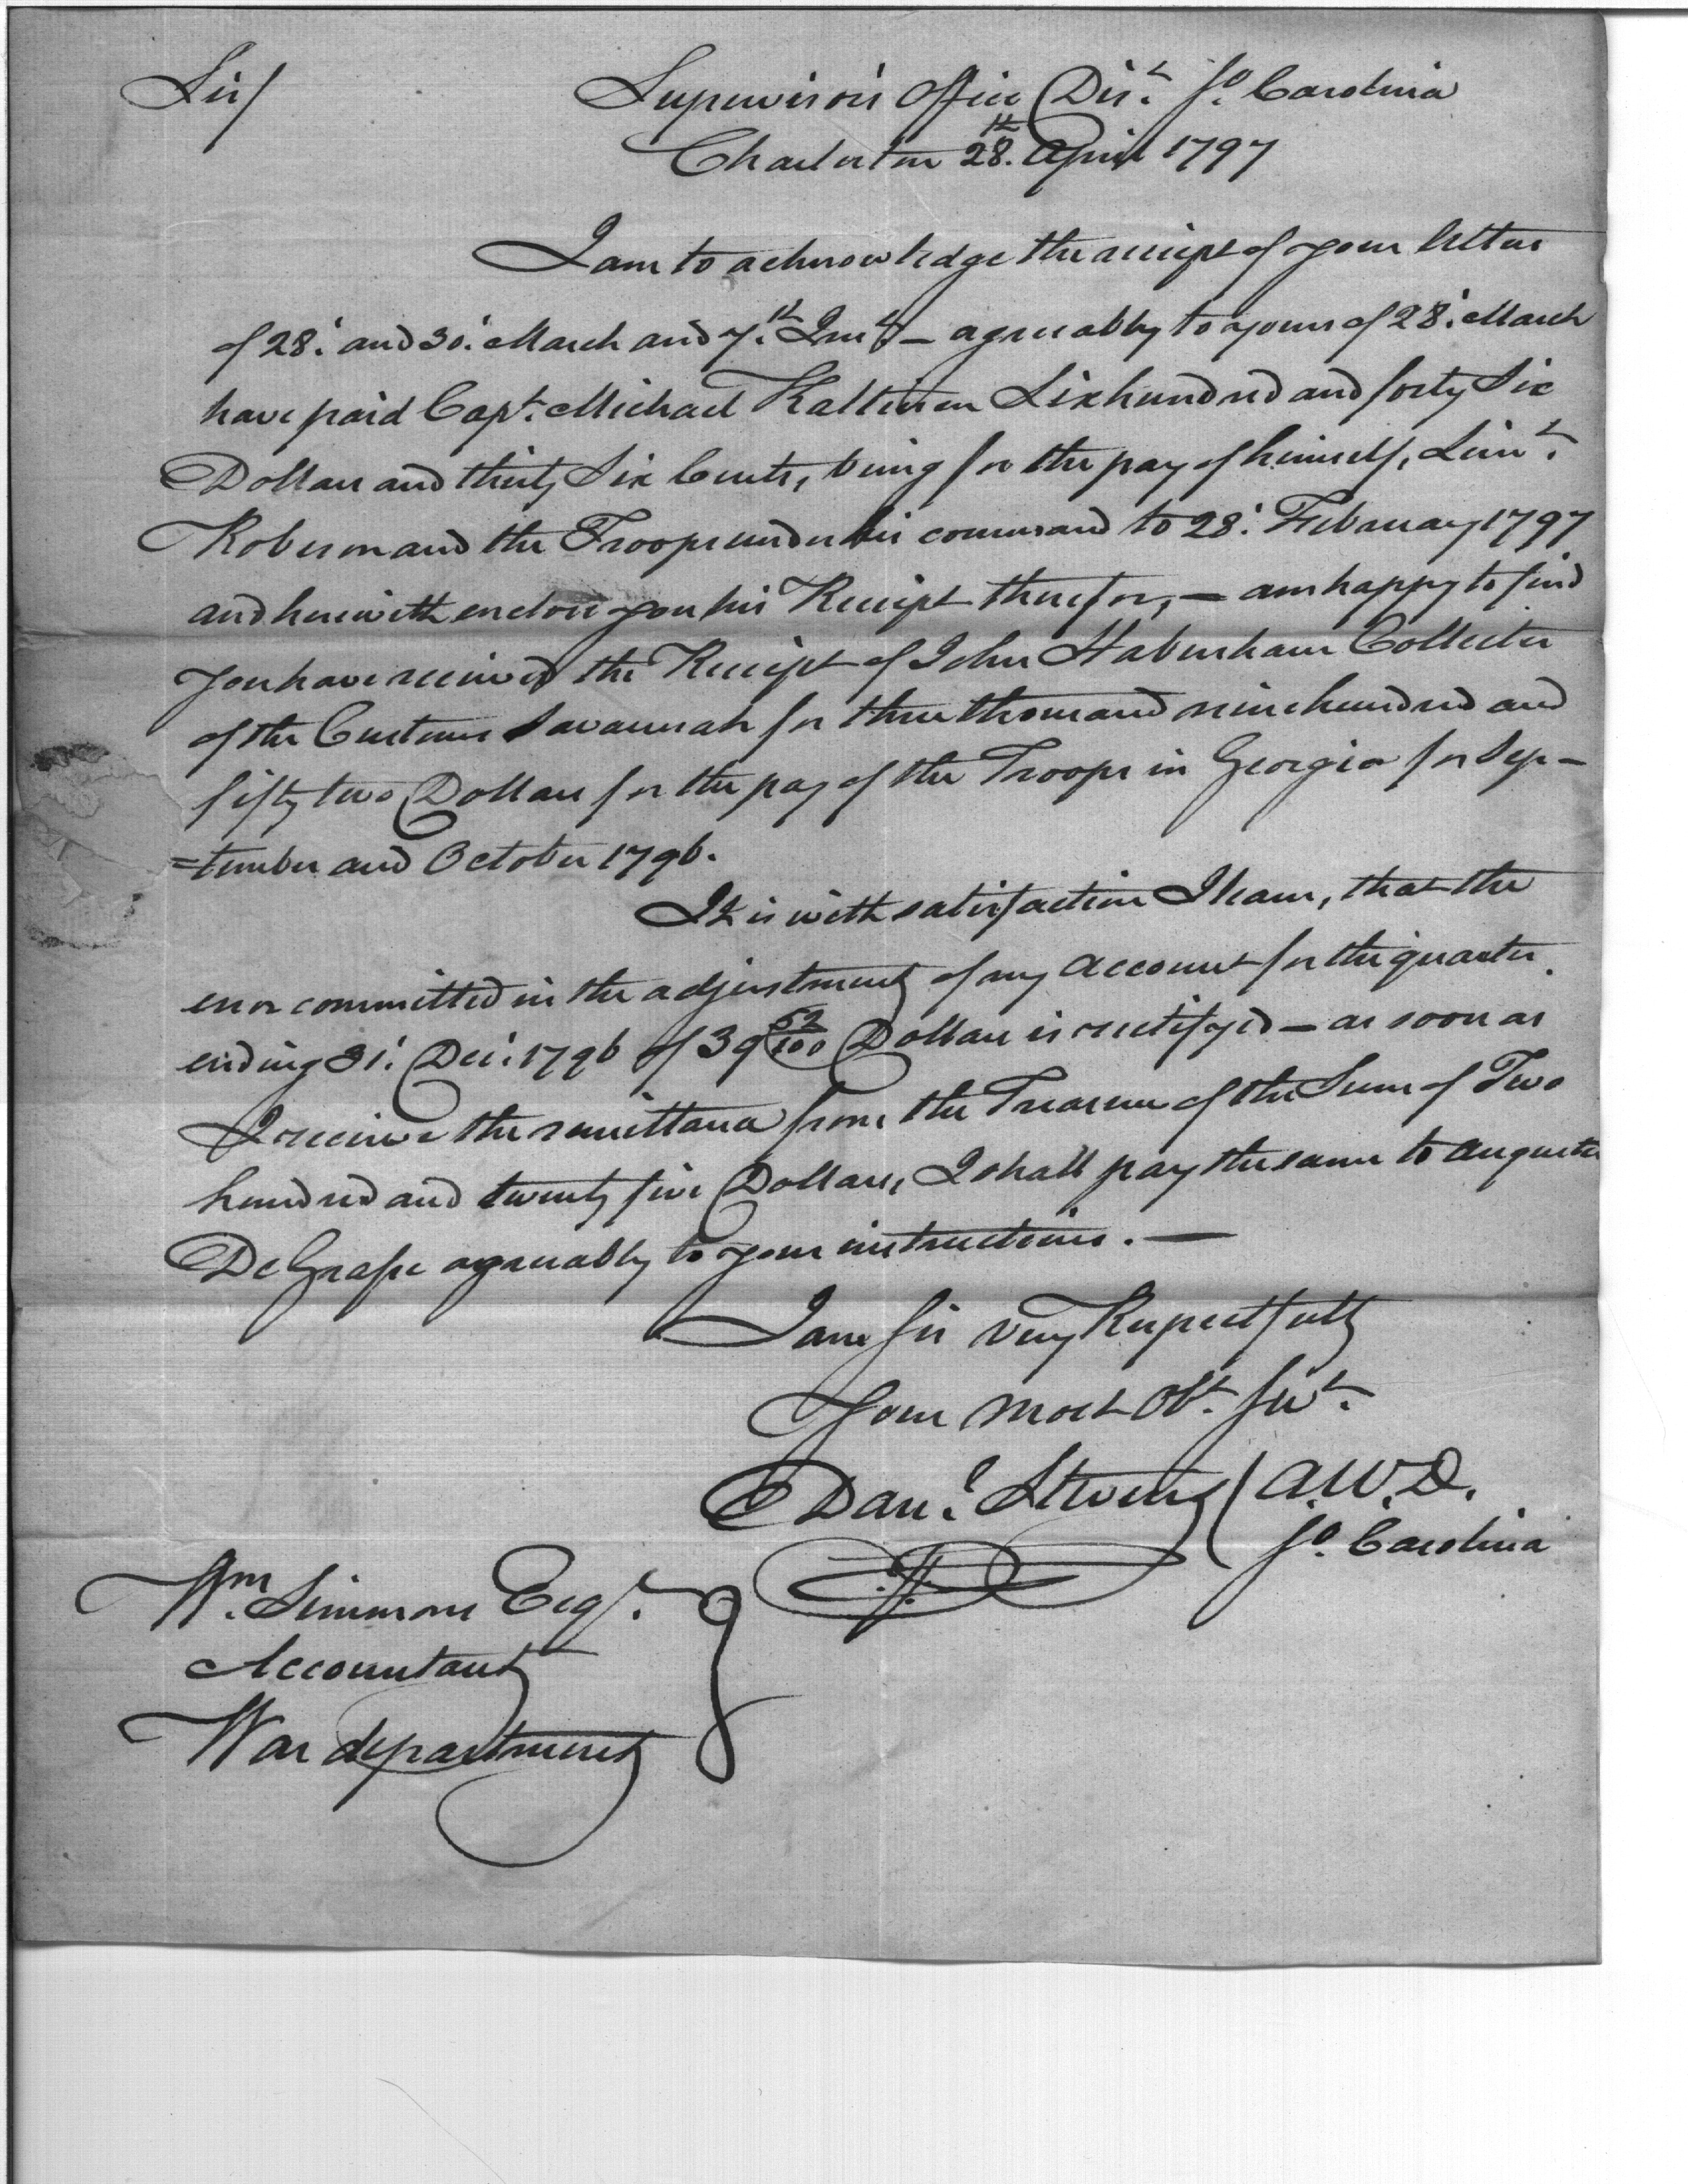 Sir/
Supervisor's Office Dist. So. Carolina
Charleston 28th. April 1797
I am to acknowledge the receipt of your letters
of 28'. and 30'. March and 7th. Inst. — agreeably to yours of 28'. March
have paid Capt. Michael Kalteisen Six hundred and forty Six
Dollars and thirty Six Cents, being for the pay of himself, Lieut.
Roberson and the Troops under his command to 28'. February 1797
and herewith enclose you his Receipt therefor, — am happy to find
you have received the Receipt of John Habersham Collector
of the Customs Savannah for three thousand nine hundred and
fifty two Dollars for the pay of the Troops in Georgia for Sep-
=tember and October 1796.
It is with satisfaction I learn, that the
error committed in the adjustment of my Account for the quarter
ending 31'. Decr. 1796 of 39 52/100 Dollars is rectifyed — as soon as
I receive the remittance from the Treasurer of the Sum of Two
hundred and twenty five Dollars, I shall pay the same to Augustus
De Grasse agreeably to your instructions. —
I am Sir very Respectfully
Your most Obt. Sert.
Danl. Stevens / A.W.D.
So. Carolina
Wm. Simmons Esqr.
Accountant
War department